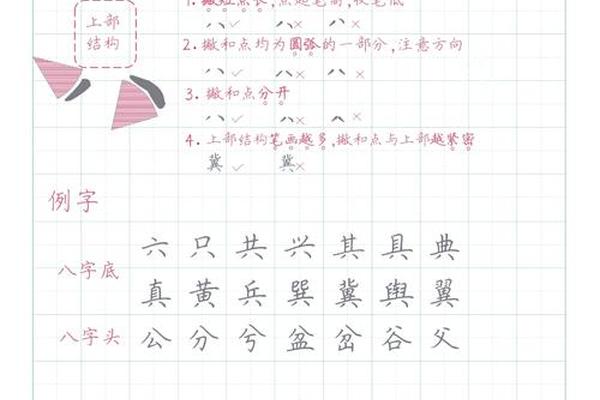 1. 撇短点长,点起笔高,收笔低
上部
结构
2. 撇和点均为圆弧的一部分,注意方向
3. 撇和点分开
4. 上部结构笔画越多,撇和点与上部越紧密
冀 冀
例字
八字底
六只共兴其具典
真黄兵巽冀舆翼
八字头 公分兮盆岔谷父